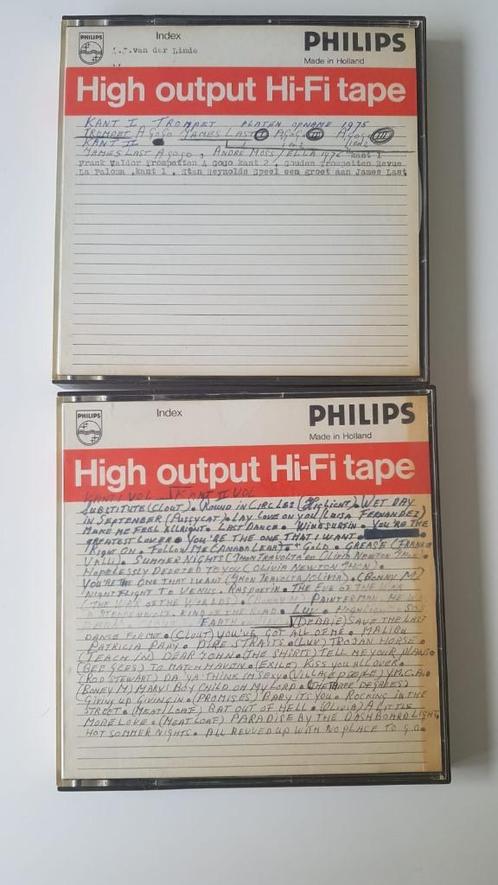 PHILIPS
Index
PHILIPS
A.J.van der Linde
Made in Holland
High output Hi-Fi tape
KANT I TROMPET PLATEN OPNAME 1975
TROMPET A GOGO JAMES LAST A GOGO A GOGO
KANT II
JAMES LAST A GOGO, ANDRE MOSS / ELLA 1976 kant I
Frank Valdor Trompetten A Gogo kant 2, Gouden Trompetten Revue
La Paloma, kant 1, Stan Reynolds Speel een groet aan James Last
PHILIPS
Index
PHILIPS
Made in Holland
High output Hi-Fi tape
KANT I VOL KANT II VOL
SUBSTITUTE (CLOUT). (ROUND IN CIRCLES (Higlicnt). WET DAY
IN SEPTEMBER (PUSSYCAT). LAY LOVE ON YOU (LUISA FERNANDEZ)
MAKE ME FEEL ALLRIGHT. LAST DANCE. WINDSURFIN. YOU'RE THE
GREATEST LOVER. YOU'RE THE ONE THAT I WANT.
RIGHT ON. FOLLOW ME (AMANDA LEAR). GOLD. GREASE (FRANKIE
VALLI). SUMMER NIGHTS (JHON TRAVOLTA en OLIVIA NEWTON JHON.
HOPELESSLY DEVOTED TO YOU (OLIVIA NEWTON JHON).
YOU'RE THE ONE THAT I WANT (JHON TRAVOLTA/OLIVIA). (BONNY M)
NIGHTFLIGHT TO VENUS. RASPOETIN. THE EVE OF THE WAR
(THE WAR OF THE WORLDS). PAINTERMAN. HE WAS
KING OF THE ROAD. LUV.
EARTH (DEBBIE) SAVE THE LAST
DANCE FOR ME. (CLOUT) YOU'VE GOT ALL OF ME. MALIBU
PATRICIA PAAY. DIRE STRAITS. (LUV) TROJAN HORSE.
(TEACH IN) DEAR JOHN. (THE SHIRTS) TELL ME YOUR PLANS.
(BEE GEES) TO MATCH HAVIN. (EXILE) KISS YOU ALL OVER.
(ROD STEWART) DA YA THINK IM SEXY. (VILLAGE PEOPLE) Y.M.C.A.
(BONEY M) MARY BOY CHILD OH MY LORD. (THE THREE DEGREES)
GIVING UP GIVING IN. (PROMISES) BABY IT'S YOU. ROCKING IN THE
STREET. (MEAT/LOAF) BAT OUT OF HELL. (OLIVIA) A LITTLE
MORE LOVE. (MEAT LOAF) PARADISE BY THE DASHBOARD LIGHT.
HOT SOMMER NIGHTS. ALL REVVED UP WITH NO PLACE TO GO.